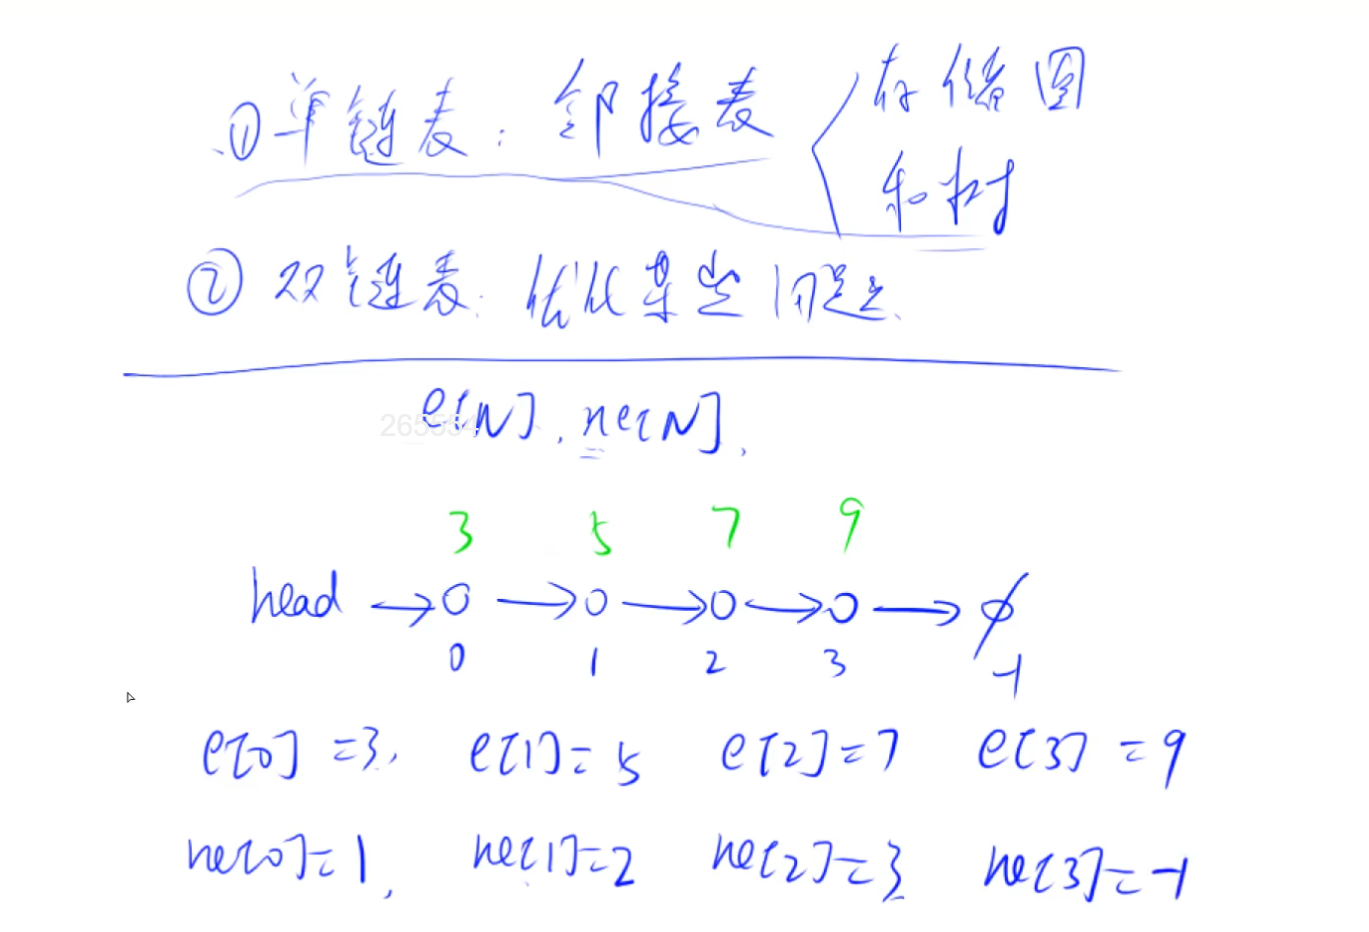 ①单链表：邻接表 存储图
和树
②双链表：优化某些问题.
265554
e[N], ne[N],
3 5 7 9
head → o → o → o → o → ∅
0 1 2 3 -1
e[0]=3, e[1]=5 e[2]=7 e[3]=9
ne[0]=1, ne[1]=2 ne[2]=3 ne[3]=-1